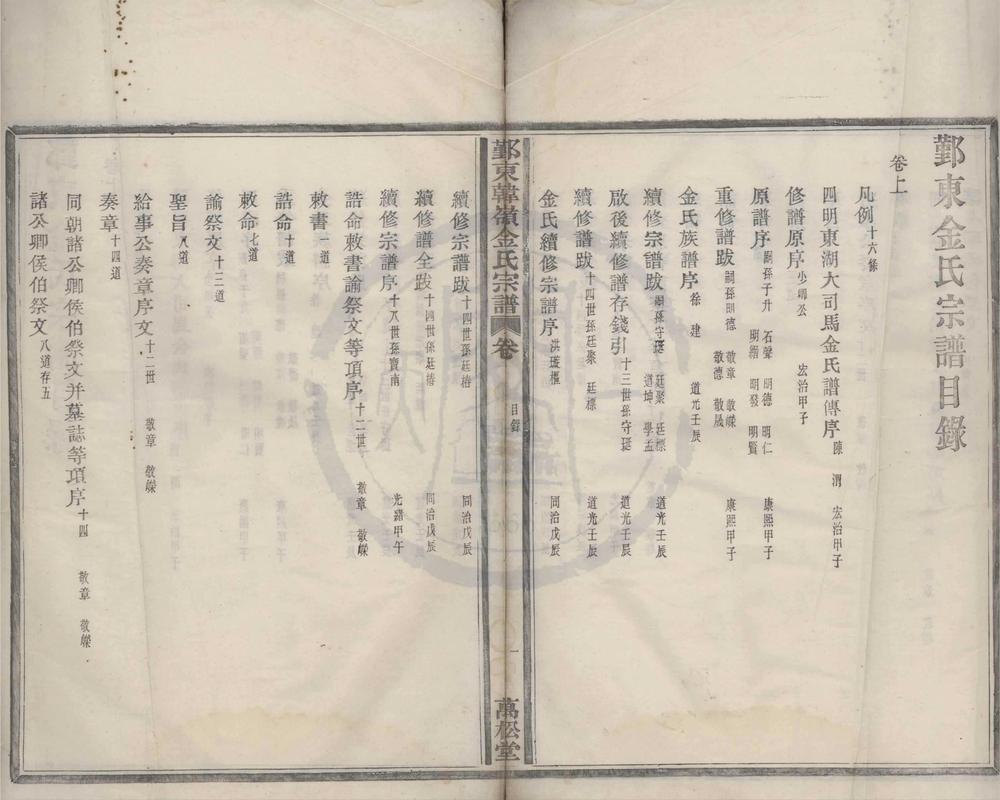 鄞東金氏宗譜目錄
卷上
凡例十六條
四明東湖大司馬金氏譜傳序 陳渭 宏治甲子
修譜原序 少塘公 宏治甲子
原譜序 嗣孫子升 石聲 明德 明仁 明翰 明發 明賢 康熙甲子
重修譜跋 嗣孫明德 敬章 敬嶸 敬德 敬晟 康熙甲子
金氏族譜序 徐建 道光壬辰
續修宗譜跋 嗣孫守珽 廷聚 廷標 道坤 學孟 道光壬辰
啟後續修譜存錢引 十三世孫守珽 道光壬辰
續修譜跋 十四世孫廷聚 廷標 道光壬辰
金氏續修宗譜序 洪璇樞 同治戊辰
鄞東韓嶺金氏宗譜 卷 目錄 一 萬松堂
續修宗譜跋 十四世孫廷椿 同治戊辰
續修譜全跋 十四世孫廷椿 同治戊辰
續修宗譜序 十八世孫寶南 光緒甲午
誥命敕書諭祭文等項序 十二世 敬章 敬嶸
敕書 一道
誥命 十道
敕命 七道
諭祭文 十三道
聖旨 八道
給事公奏章序文 十二世 敬章 敬嶸
奏章 十四道
同朝諸公卿侯伯祭文并墓誌等項序 十四 敬章 敬嶸
諸公卿侯伯祭文 八道存五